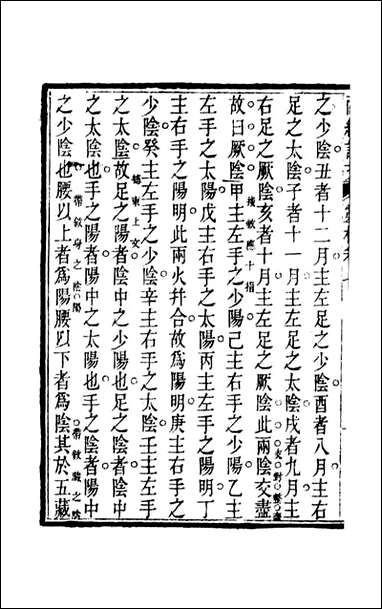 之少陰丑者十二月主左足之少陰酉者八月主右
足之太陰子者十一月主左足之太陰戌者九月主
右足之厥陰亥者十月主左足之厥陰此兩陰交盡
接敘應十指
故曰厥陰甲主左手之少陽己主右手之少陽乙主
左手之太陽戊主右手之太陽丙主左手之陽明丁
主右手之陽明此兩火幷合故爲陽明庚主右手之
少陰癸主左手之少陰辛主右手之太陰壬主左手
總束上文
之太陰故足之陽者陰中之少陽也足之陰者陰中
之太陰也手之陽者陽中之太陽也手之陰者陽中
帶敘身之陰陽
帶敘藏之陰
之少陰也腰以上者爲陽腰以下者爲陰其於五藏